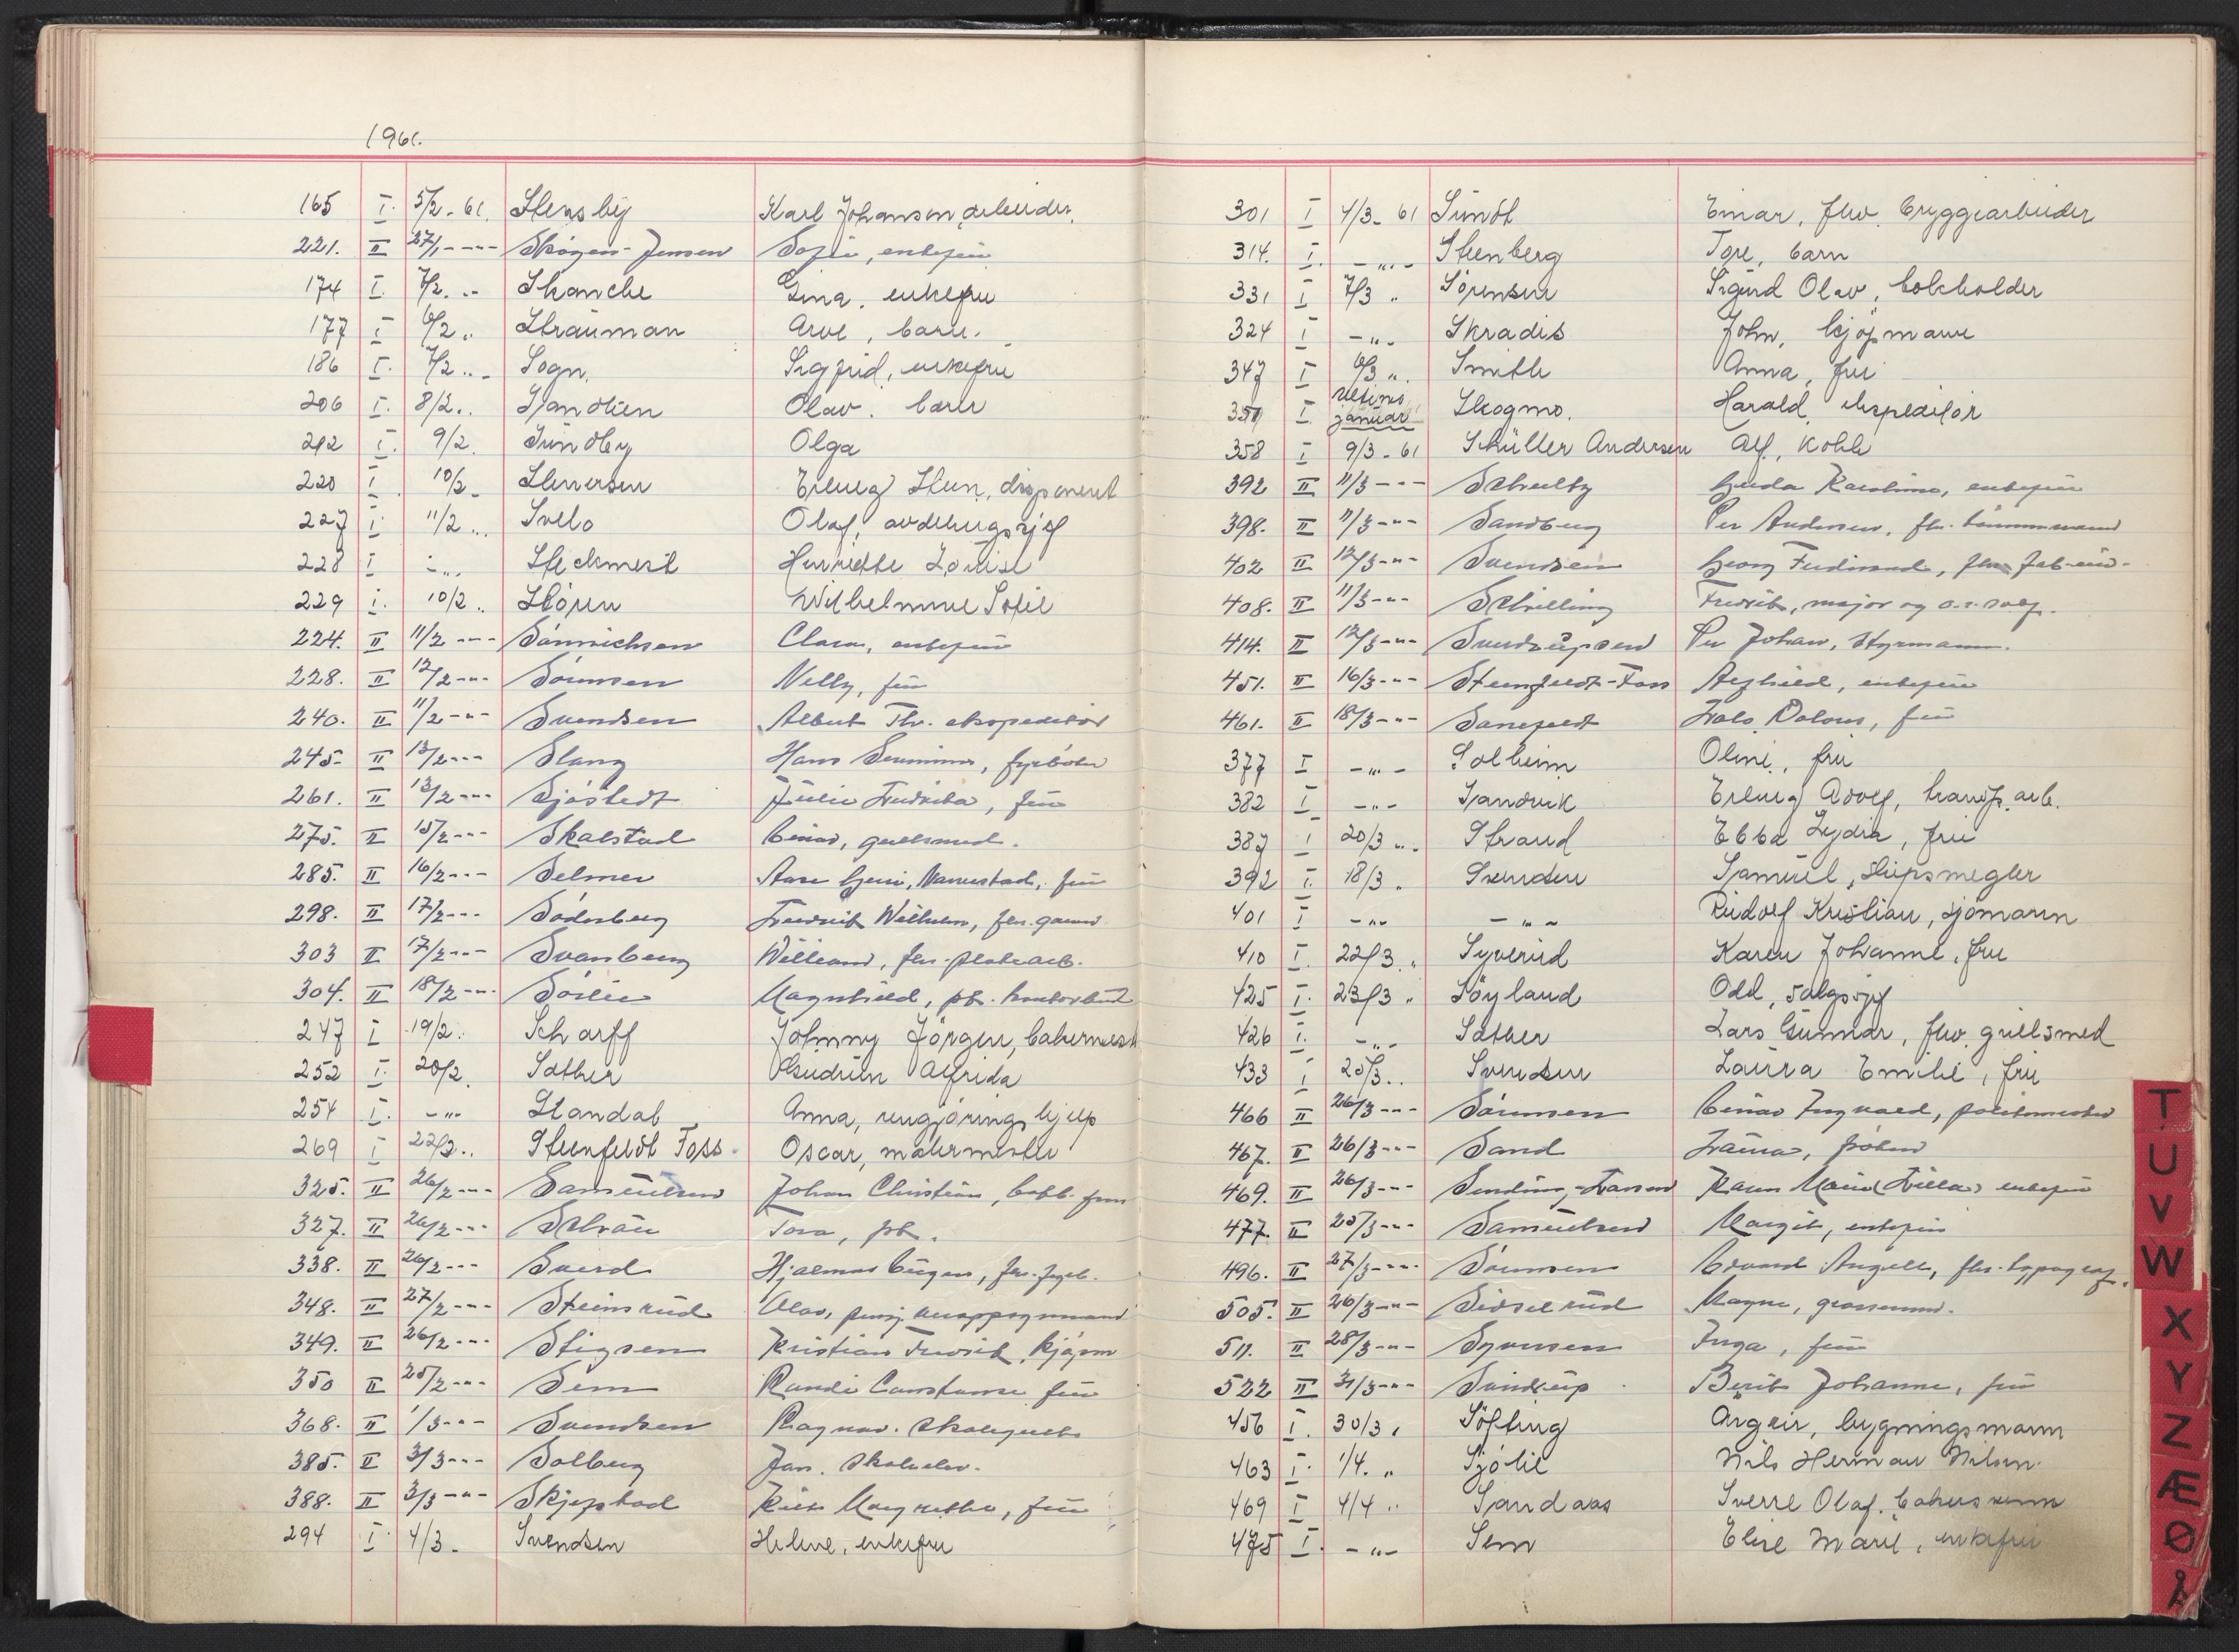 1961.
165 I. 5/2-61. Stensby Karl Johansen, arbeider.
221. II 27/1 -"- Skógen-Jensen Sofie, enkefru
174 I. 7/2. " Skanche Gina, enkefru
177 I 6/2 " Strauman Arve, barn.
186 I. 7/2 " Sogn. Sigfrid, enkefru
206 I. 8/2 " Sandlien Olav. barn
212 I. 9/2. Sundby Olga
220 I. 10/2 Stenersen Erling Sten, disponent
227 I 11/2 " Svelo Olaf, avdelingssjef
228 I -"- Steckmest Henriette Louise
229 I. 10/2 " Stören Wilhelmine Sofie
224. II 11/2 -"- Sönnichsen Clara, enkefru
228. II 12/2 -"- Sörensen Nelly, fru
240. II 11/2 -"- Svendsen Albert Th. ekspeditör
245. II 13/2 -"- Slang Hans, fyrböter
261. II 13/2 -"- Sjöstedt Julie Fredrika, fru
275. II 15/2 -"- Skalstad Einar, gullsmed.
285. II 16/2 -"- Selmer Aase, fru
298. II 17/2 -"- Söderberg Fredrik Wilhelm, fhv.
303 II 17/2 -"- Svanberg William, fhv. platearb.
304. II 18/2 -"- Sörlie Magnhild, pk.
247 I 19/2. Scharff Johnny Jörgen, bakermester
252 I. 20/2. Sæther Gudrun Alfrida
254 I. -"- Standal Anna, rengjörings hjelp
269 I 22/2 " Steenfeldt Foss Oscar, malermester
325. II 26/2 -"- Samuelsen Johan Christian,
327. II 26/2 -"- Tora, pk.
338. II 26/2 -"- Sverd Hjalmar Eugen, fhv.
348. II 27/2 -"- Steinsrud Olav, pensj.
349. II 26/2 -"- Stigsen Kristian Fredrik, kjöpm
350 II 25/2 -"- Sem Randi Constanse fru
368. II 1/3 -"- Svendsen Ragnar.
385. II 3/3 -"- Solberg Jan. skoleelev.
388. II 3/3 -"- Skjepstad Margrethe, fru
294 I. 4/3. Svendsen Helene, enkefru
301 I 4/3-61 Sundt Einar, fhv. bryggearbeider
314. I. -"- Steenberg Tore, barn
331 I 7/3 " Sörensen Sigurd Olav, bokholder
324 I -"- Skradis John, kjöpmann
347 I 6/3 ". Smith Anna, fru
350 I. Ultimo januar Skogmo. Harald, ekspeditör
358 I 9/3-61 Schüller Andersen Alf, kokk
392 II 11/3 -"- Karoline, enkefru
398. II 11/3 -"- Sandberg Per Andersen, fhv.
402 II 12/3 -"- Svendsen Georg Ferdinand, fhv.
408. II 11/3 -"- Schilling Fredrik, major og o.r.sakf.
414. II 12/3 -"- Per Johan, styrmann.
451. II 16/3 -"- Steenfeldt-Foss enkefru
461. II 18/3 -"- fru
377 I -"- Solheim Oline, fru
382 I -"- Sandvik Erling Adolf, transp. arb.
387 I 20/3 ". Strand Ebba Lydia, fru
392 I. 18/3 " Svendsen Samuel, skipsmegler
401 I -"- -"- Rudolf Kristian, sjömann
410 I. 22/3 " Syverud Karen Johanne, fru
425 I. 23/3 " Söyland Odd, salgssjef
426 I. -"- Sæther Lars Gunnar, fhv. gullsmed
433 I 25/3 " Svendsen Laura Emilie, fru
466 II 26/3 -"- Sörensen Einar Ingvald, politimester
467. II 26/3 -"- Sand fröken
469. II 26/3 -"- Sinding-Larsen Karen Marie enkefru
477. II 25/3 -"- Samuelsen Margit, enkefru
496. II 27/3 -"- Sörensen Edvard Angell, fhv. typograf.
505. II 26/3 -"- Sidselrud Magne, grosserer.
511. II 28/3 -"- Syversen Inga, fru
522 II 31/3 -"- Svindrup Berit Johanne, fru
456 I. 30/3 " Söfting Asgeir, bygningsmann
463 I 1/4. " Sjölie Nils Herman Nilsen.
469 I 4/4 " Sandaas Sverre Olaf,
475 I. -"- Sem Elise Marie, enkefru
T
U
V
W
X
Y
Z
Æ
Ø
Å